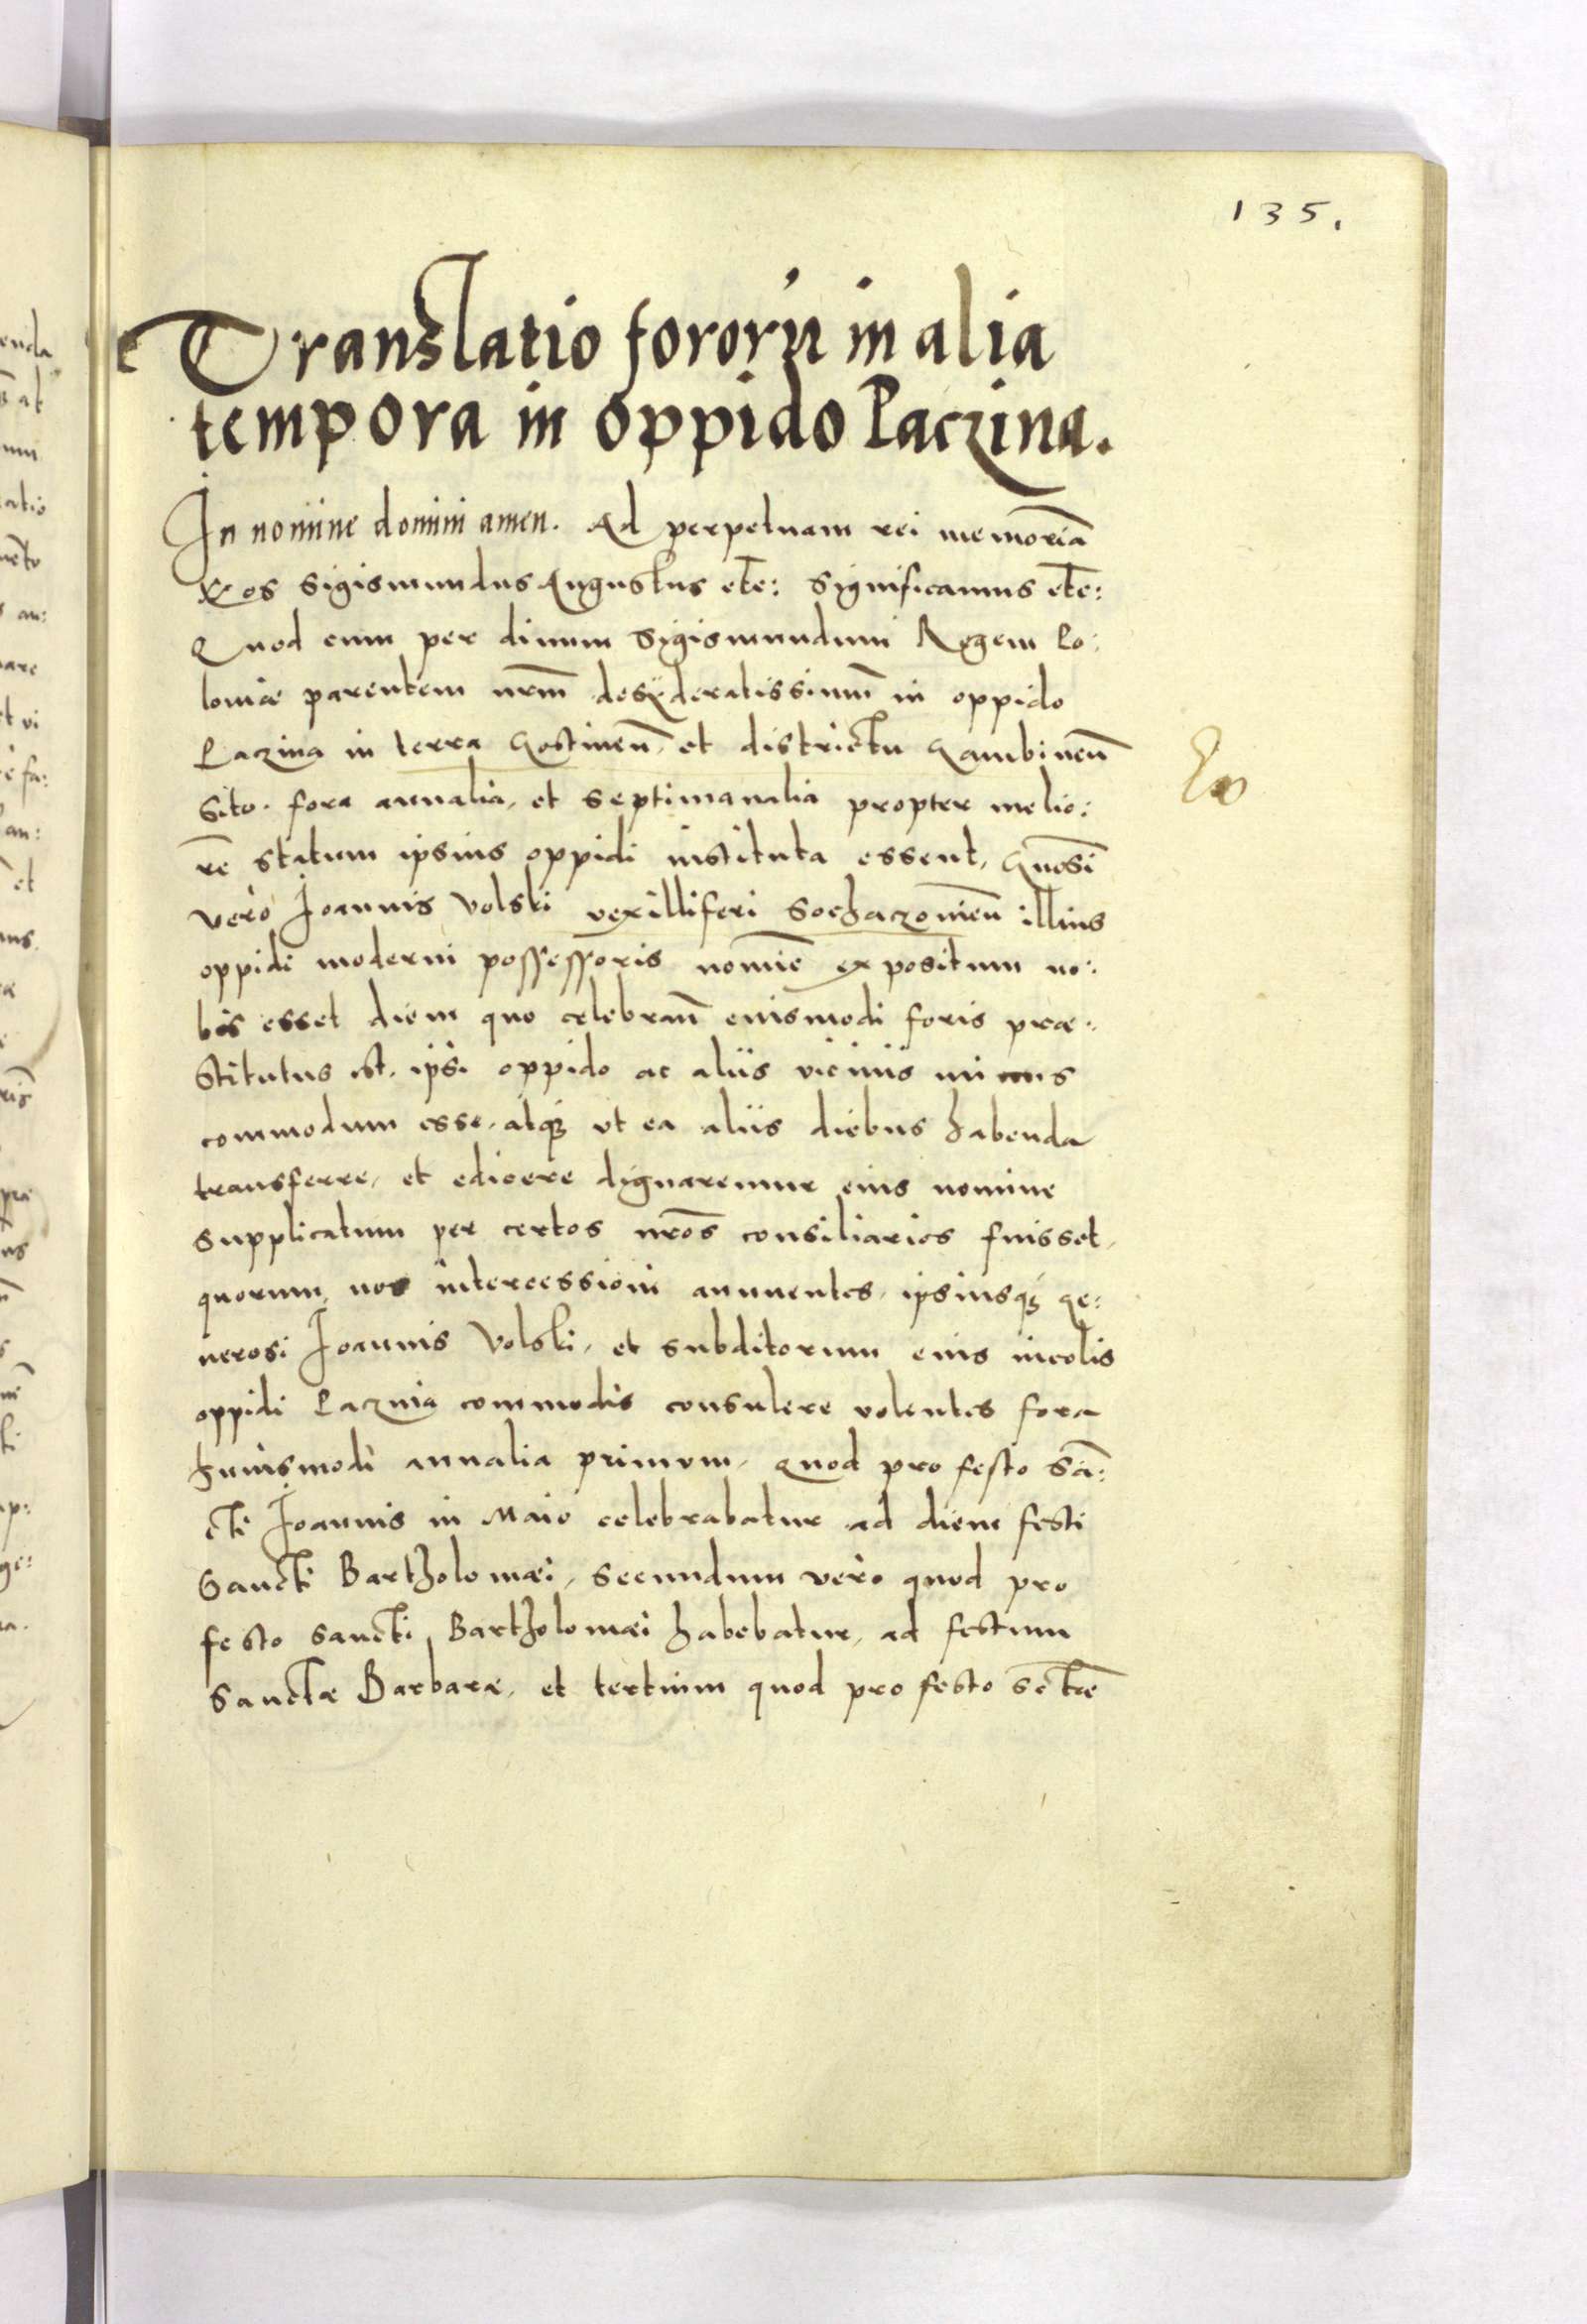 135.
Translatio fororũ in alia
tempora in oppido Paczina.
In nomine domini amen. Ad perpetuam rei memoriã
Nos Sigismundus Augustus etc: Significamus etc:
Quod cum per divum Sigismundum Regem Po:
loniæ parentem nrm̃ desyderatissimum̃ in oppido
Paczina in terra Gostinen̄, et districtu Gambinen̄
sito. fora annalia, et septimanalia propter melio:
rẽ statum ipsius oppidi instituta essent, Gnosi
verò Joannis Volski vexilliferi Sochaczovien̄ illius
oppidi moderni possessoris nomiẽ expositum no:
bis esset diem quo celebran̄ eiusmodi foris præ:
stitutus est, ipsi oppido ac aliis viciniis minus
commodum esse, atq3 ut ea aliis diebus habenda
transferre, et edicere dignaremur eius nomine
supplicatum per certos nrõs consiliarios fuisset,
quorum nos intercessioni annuentes, ipsiusq3 Ge:
nerosi Joannis Volski, et subditorum eius incolis
oppidi Paczina commodis consulere volentes fora
huiusmodi annalia primum, quod pro festo Sã:
cti Joannis in Maio celebrabatur ad diem festi
Sancti Bartholomæi, secundum verò quod pro
festo Sancti Bartholomæi habebatur, ad festum
Sanctæ Barbaræ, et tertium quod pro festo Sctæ